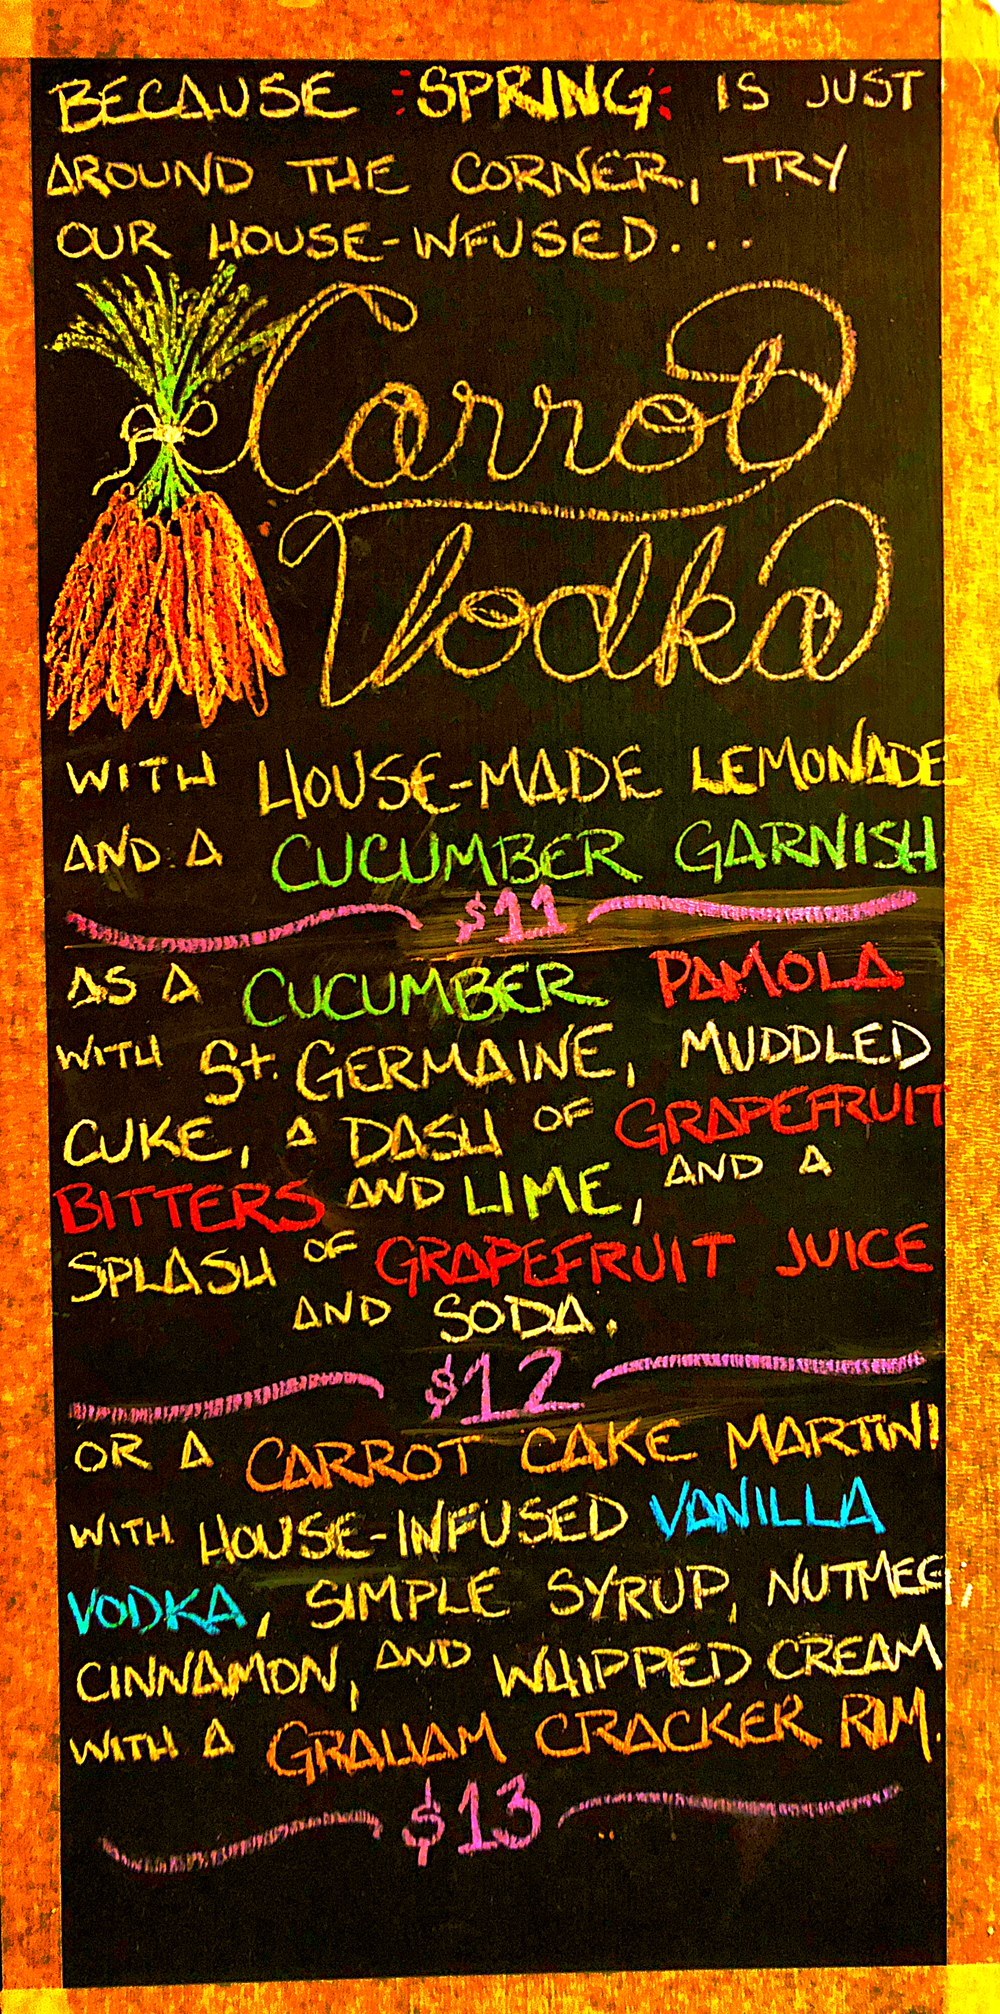 BECAUSE SPRING IS JUST
AROUND THE CORNER, TRY
OUR HOUSE-INFUSED...
Carrot
Vodka
WITH HOUSE-MADE LEMONADE
AND A CUCUMBER GARNISH
$11
AS A CUCUMBER PAMOLA
WITH St. GERMAINE, MUDDLED
CUKE, A DASH OF GRAPEFRUIT
BITTERS AND LIME, AND A
SPLASH OF GRAPEFRUIT JUICE
AND SODA.
$12
OR A CARROT CAKE MARTINI
WITH HOUSE-INFUSED VANILLA
VODKA, SIMPLE SYRUP, NUTMEG,
CINNAMON, AND WHIPPED CREAM
WITH A GRAHAM CRACKER RIM.
$13